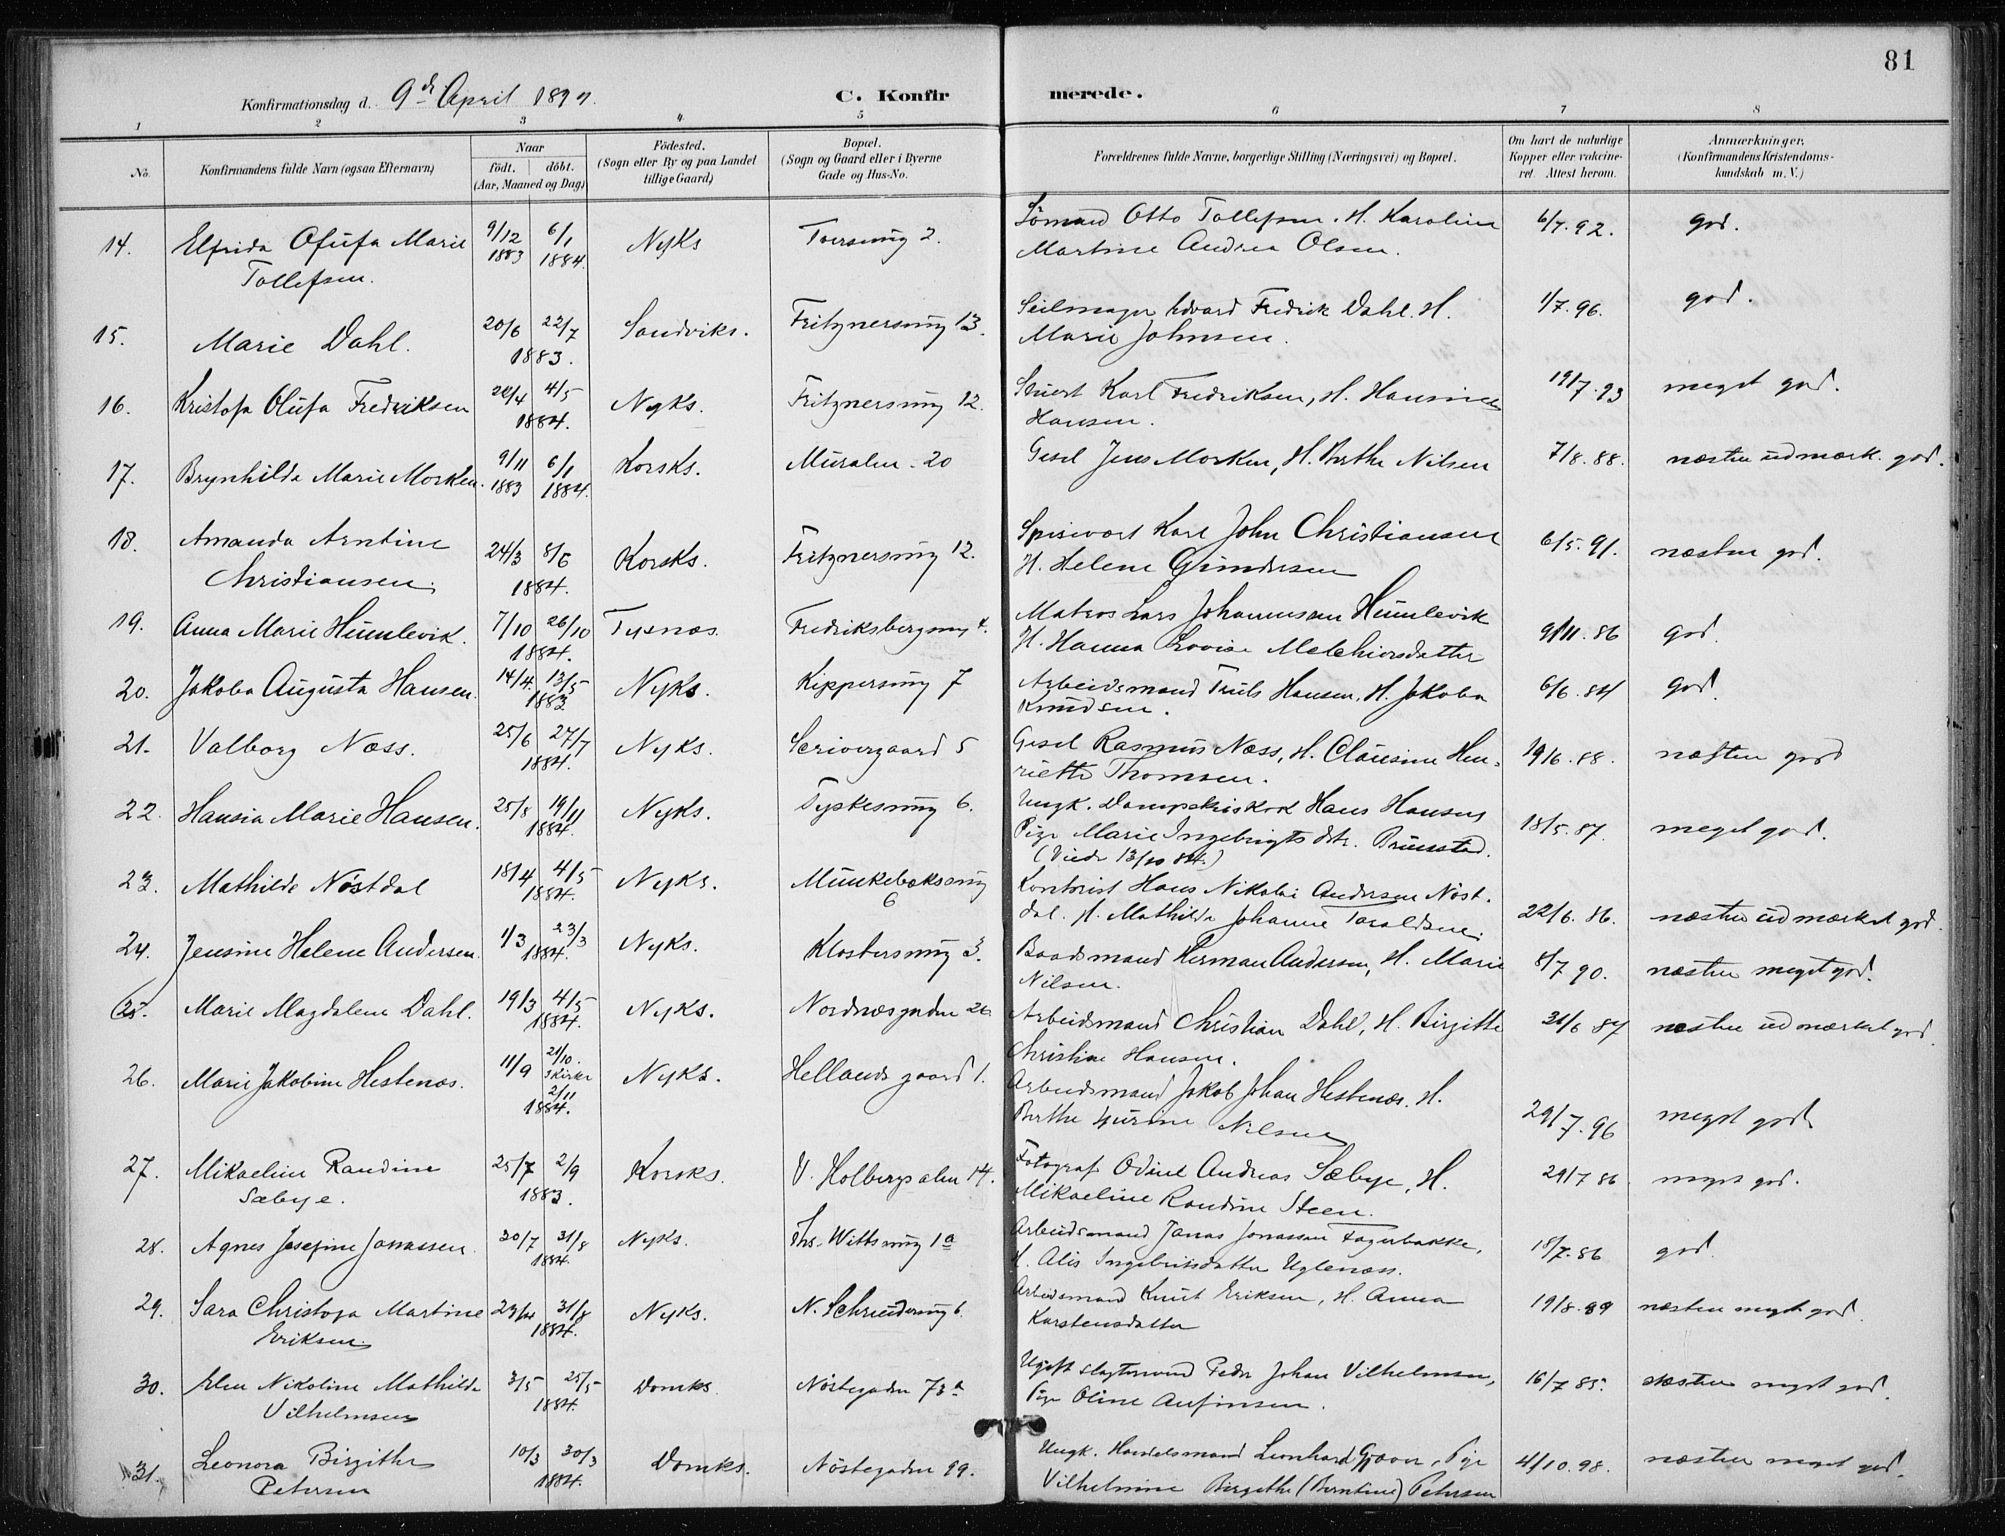 81
Konfirmationsdag d. 9de April 1899.
C. Konfirmerede.
1 2 3 4 5 6 7 8
No. Konfirmandens fulde Navn (ogsaa Efternavn) Naar födt. döbt. (Aar, Maaned og Dag) Födested. (Sogn eller By og paa Landet tillige Gaard) Bopæl. (Sogn og Gaard eller i Byerne Gade og Hus-No.) Forældrenes fulde Navne, borgerlige Stilling (Næringsvei) og Bopæl. Om havt de naturlige Kopper eller vakcineret. Attest herom. Anmærkninger. (Konfirmandens Kristendomskundskab m. V.)
14. Elfrida Olufa Marie 9/12 1883 6/1 1884. Nyks Toersmug 2. Sömand Otto Tollefsen. H. Karoline 6/7.92. god.
Tollefsen. Martine Andrea Olsen.
15. Marie Dahl. 20/6 22/7 1883. Sandviks. Fritznersmug 13. Seilmager Edvard Fredrik Dahl. H. 1/7.96. god.
Marie Johnsen.
16. Kristofa Olufa Fredriksen 4/5 1884. Nyks. Fritznersmug 12. Karl Fredriksen, H. 19/7.93 meget god.
Hansen.
17. Brynhilda Marie Morken. 9/11 1883 6/1 1884. Korsks. Muralm. 20 Gesel Jens Morken, H. Berthe Nilsen 7/8.88. næsten udmærk. god.
18. Amanda Arntine 24/3 8/6 1884. Korsks. Fritznersmug 12. Spisevært Karl John Christiansen 6/5.91. næsten god.
Christiansen. H. Helene Gundersen
19. Anna Marie Humlevik. 7/10 26/10 1884. Tysnæs. Fredriksbergsmug 4. Matros Lars Johannessen Humlevik 9/11.86 god.
H. Hanna Lovise Melchiorsdatter
20. Jakoba Augusta Hansen. 14/4. 13/5 1883 Nyks. Kippersmug 7 Arbeidsmand Truls Hansen, H. Jakoba 6/6.84 god.
Knudsen.
21. Valborg Næss. 25/6 27/7 1884. Nyks. Scrivergaard 5 Gesel Rasmus Næss, H. Clausine Hen- 19/6.88. næsten god
riette Thomsen.
22. Hansia Marie Hansen. 25/8 19/11 1884. Nyks. Tyskesmug 6. Ungk. Dampskibskok Hans Hansen 18/5.87. meget god.
Pige Marie Ingebrigtsdtr. Bruusted.
(Viede 13/10 84.)
23. Mathilde Nöstdal 18/4 4/5 1884. Nyks. Munkebæksmug 6 Kontorist Hans Nikolai Andersen Nöst- 22/6.86. næsten udmærket god.
dal. H. Mathilde Johanne Taraldsen.
24. Jensine Helene Andersen. 1/3 23/3 1884. Nyks. Klostersmug 3. Baadsmand Herman Andersen, H. Marie 8/7 90. næsten meget god.
Nilsen.
25. Marie Magdalene Dahl. 19/3 4/5 1884. Nyks. Nordnæsgaden 20 Arbeidsmand Christian Dahl, H. Birgitte 21/6 87 næsten udmærket god
Christine Hansen.
26. Marie Jakobine Hestenæs. 11/9 21/10. i Kirke 2/11 1884. Nyks. Hellands gaard 1. Arbeidsmand Jakob Johan Hestenæs. H. 29/7.96 meget god
Berthe Gurine Nilsen
27. Mikaeline Randine 25/7 2/9 1883. Korsks. V. Holbergsalm 14. Fotograf Odinl Andreas Sæbye, H. 29/7 86 meget god.
Sæbye. Mikaeline Randine Steen.
28. Agnes Josefine Jonassen. 20/7 31/8 1884. Nyks. Ths. Wittsmug 1a Arbeidsmand Jonas Jonassen Fagerbakke, 18/7.86 god.
H. Alis Ingebrigtsdatter Uglenæss.
29. Sara Christofa Martine 31/8 1884. Nyks. N. Schreudersmug 6. Arbeidsmand Knut Eriksen, H. Anna 19/8.89 næsten meget god
Eriksen. Karstensdatter
30. Elen Nikoline Mathilde 3/5 25/5 1884. Domks. Nöstegaden 73a Ugift slagtersvend Peder Johan Vilhelmsen, 16/7 85. næsten meget god.
Vilhelmsen Pige Oline Anfinsen.
31. Leonora Birgithe 10/3 30/3 1884. Domks. Nöstegaden 99. Ungk. Handelsmand Leonhard Gjæver, Pige 4/10.98. næsten meget god.
Petersen Vilhelmine Birgithe (Berntine) Petersen